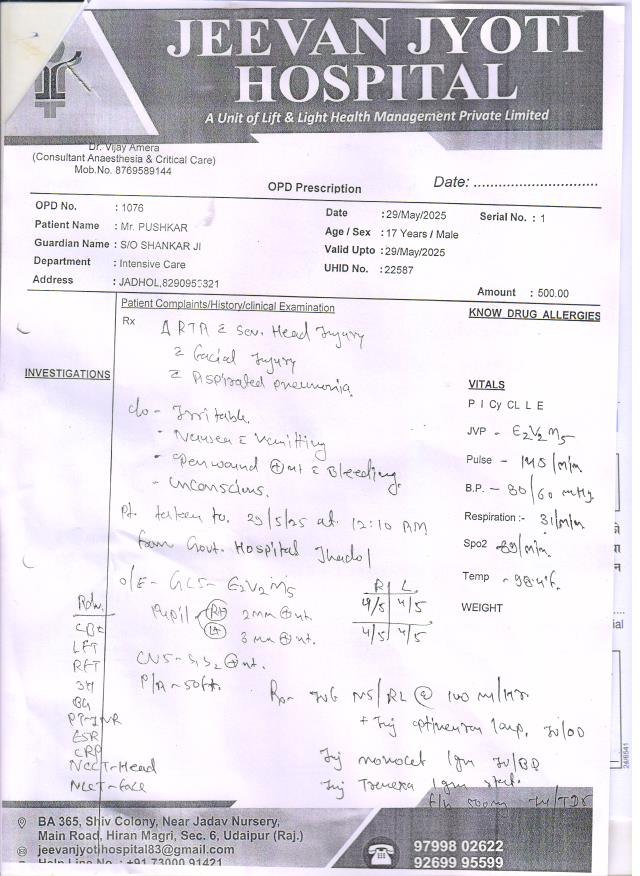 JEEVAN JYOTI
HOSPITAL
A Unit of Lift & Light Health Management Private Limited
Dr. Vijay Amera
(Consultant Anaesthesia & Critical Care)
Mob.No. 8769589144
OPD Prescription
Date: ..............................
OPD No. : 1076
Patient Name : Mr. PUSHKAR
Guardian Name : S/O SHANKAR JI
Department : Intensive Care
Address : JADHOL,
Date : 29/May/2025
Serial No. : 1
Age / Sex : 17 Years / Male
Valid Upto : 29/May/2025
UHID No. : 22587
Amount : 500.00
Patient Complaints/History/clinical Examination
KNOW DRUG ALLERGIES
Rx
Δ RTA c̄ Sev. Head Injury
c̄ facial Injury
c̄ Aspirated pneumonia
INVESTIGATIONS
c/o - Irritable
- Nausea c̄ Vomitting
- Openwound ⊕nt c̄ Bleeding.
- Unconscious.
Pt. taken to. 29/5/25 at 12:10 AM
from Govt. Hospital Jhadol
O/E - GCS - E2V2M5
Pupil RT 2mm ⊕nt
LT 3mm ⊕nt.
R L
4/5 4/5
4/5 4/5
CNS - S1S2 ⊕nt.
P/A - Soft.
VITALS
P I Cy CL L E
JVP - E2V2M5
Pulse - 145/min
B.P. - 80/60 mmHg
Respiration:- 31/min
Spo2 - 89/min
Temp - 98.4°F.
WEIGHT
Adv.
CBC
LFT
RFT
BG
PT-INR
ESR
CRP
NCCT-Head
NCCT-face
Rx- IVF NS/RL @ 100 ml/Hr
+ Inj 1amp. IV/OD
Inj monocef 1gm IV/BD
Inj Tranexa 1gm stat.
f/b 500mg IV/TDS
BA 365, Shiv Colony, Near Jadav Nursery,
Main Road, Hiran Magri, Sec. 6, Udaipur (Raj.)
jeevanjyotihospital83@gmail.com
Help Line No.: +91 73000 91421
97998 02622
92699 95599
24/6541